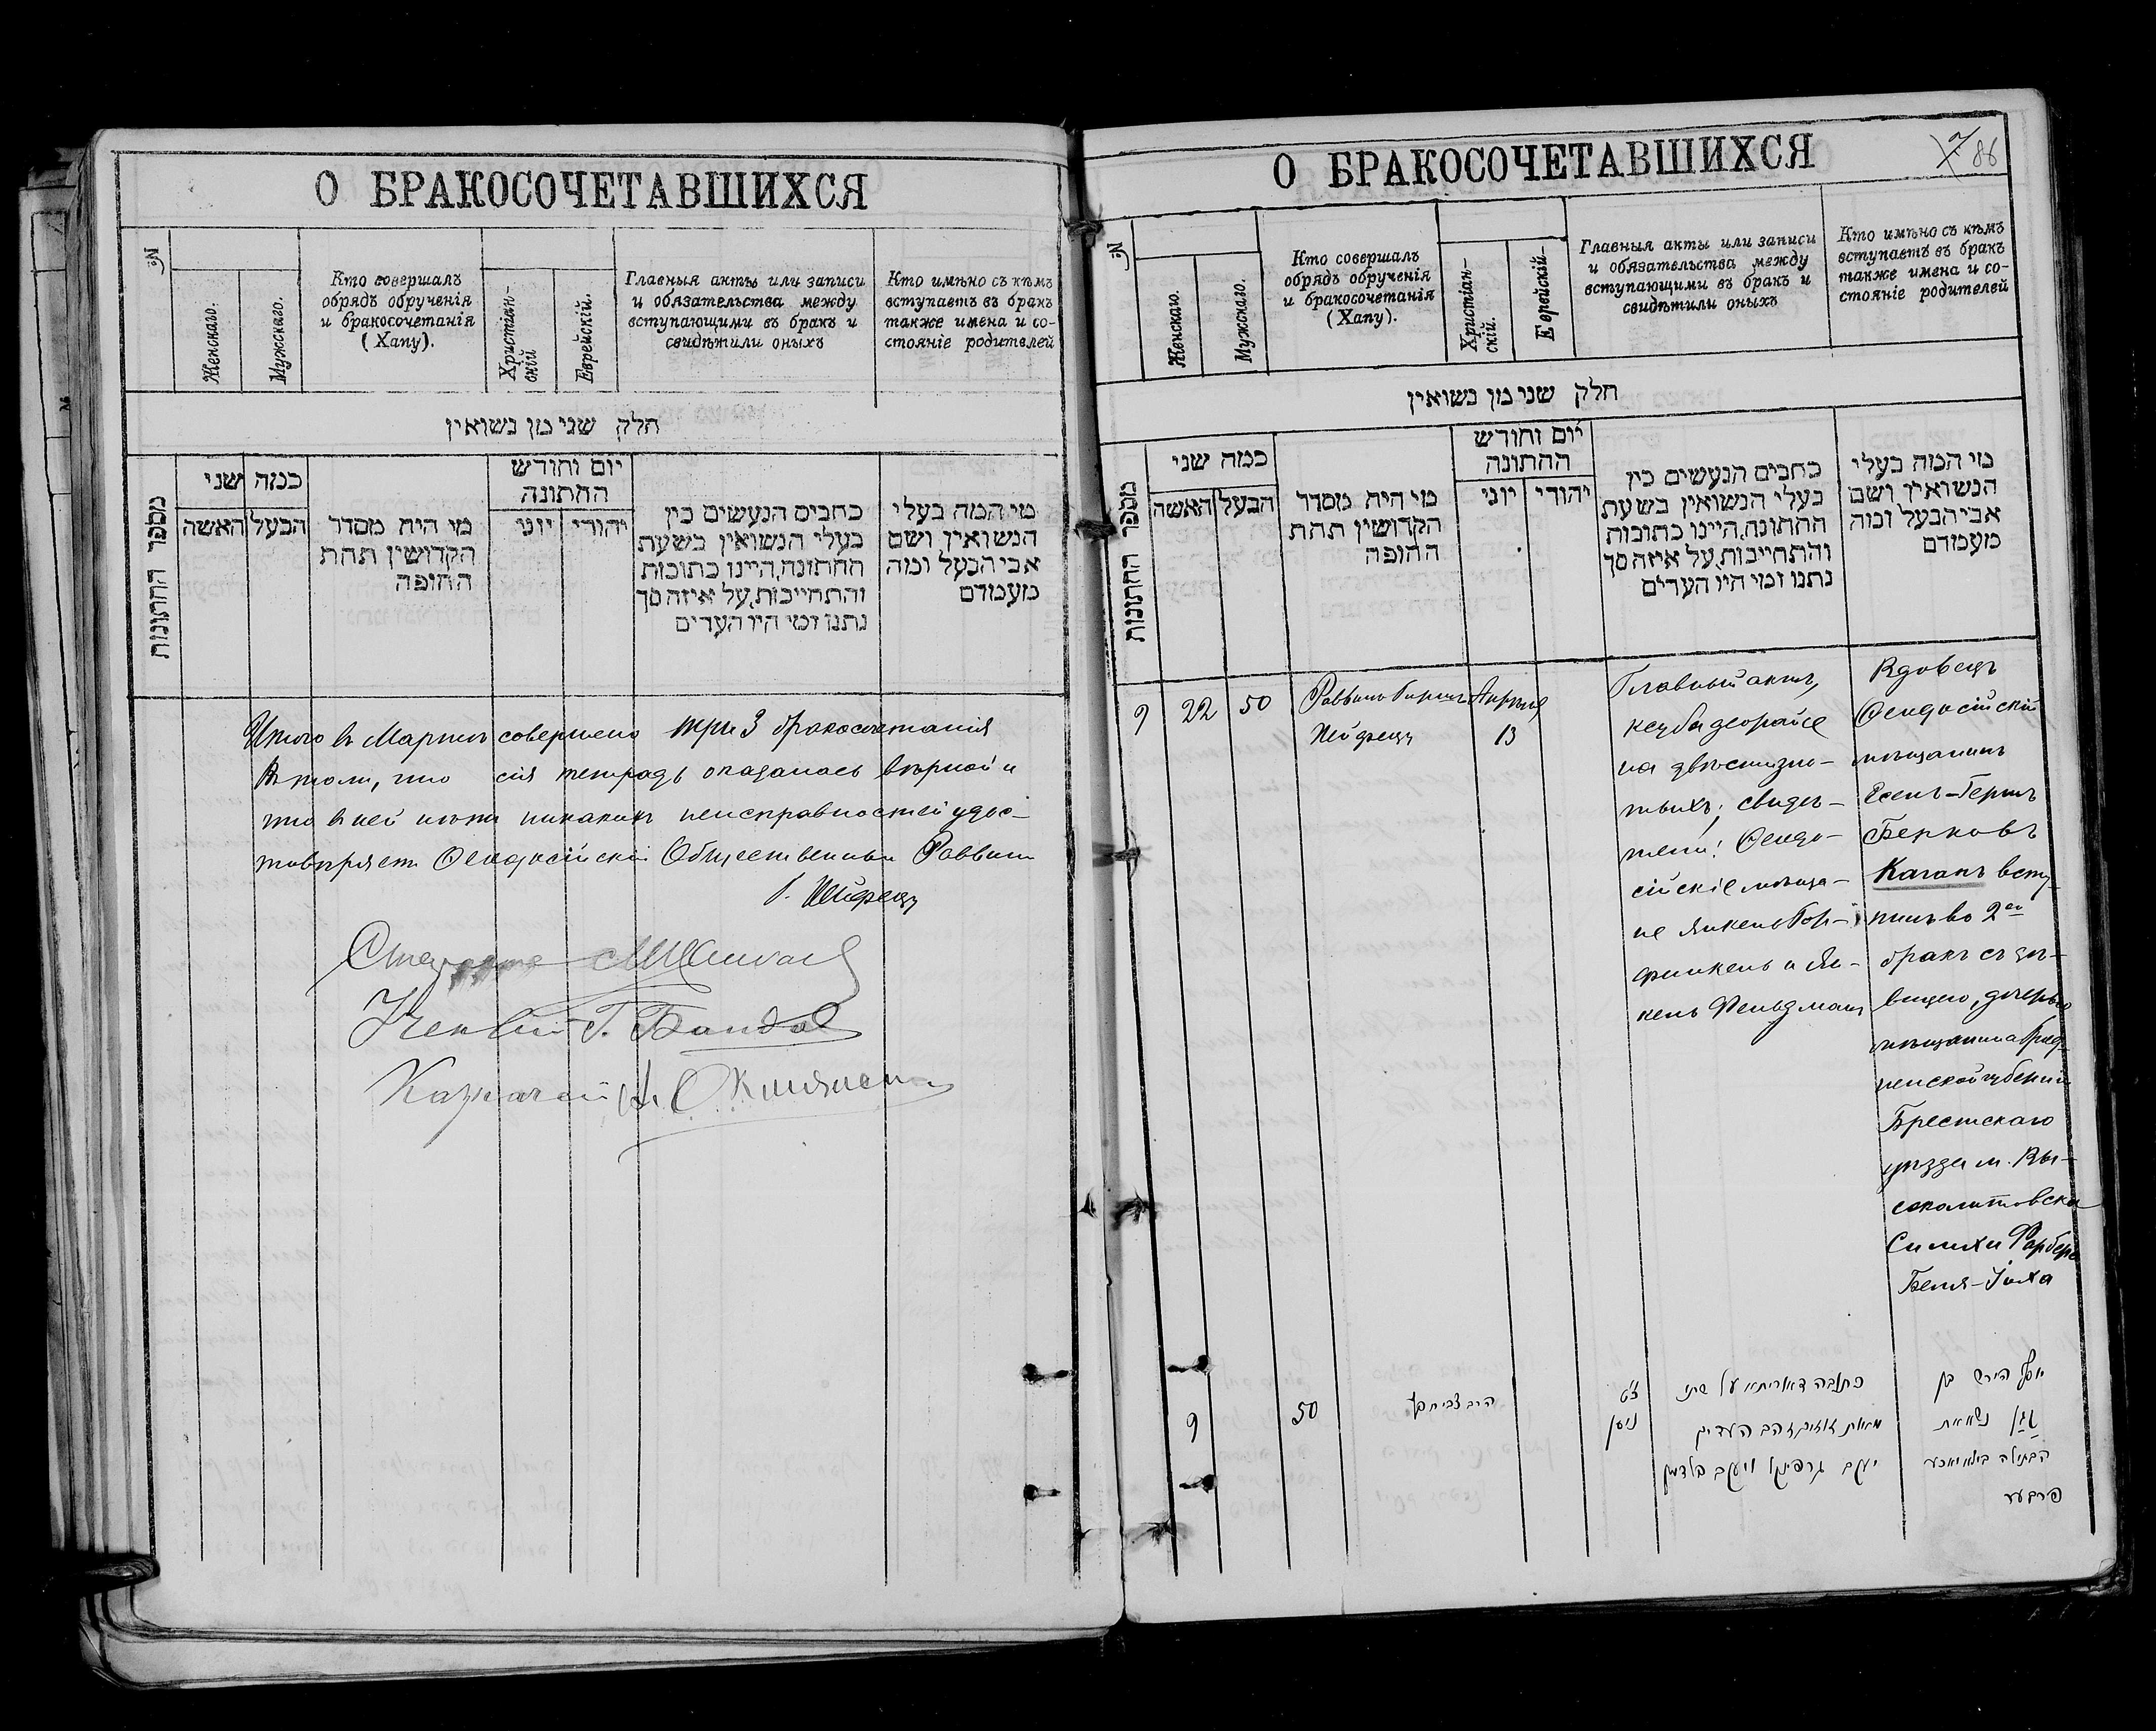 О БРАКОСОЧЕТАВШИХСЯ
№
Женскаго.
Мужскаго.
Кто совершалъ
обрядъ обрученія
и бракосочетанія
(Хапу).
Христіан-
скій
Еврейскій.
Главныя акты или записи
и обязательства между
вступающими въ бракъ и
свидѣтили оныхъ
Кто имѣно съ кѣмъ
вступаетъ въ бракъ
также имена и со-
стояніе родителей
חלק שני מן נשואין
מספר החתונות
כמה שני
האשה
הבעל
מי היה מסדר
הקדושין תחת
החופה
יום וחודש
החתונה
יוני
יהודי
כתבים הנעשים בין
בעלי הנשואין בשעת
החתונה, היינו כתובות
והתחייבות, על איזה סך
נתנו ומי היו העדים
מי המה בעלי
הנשואין ושם
אבי הבעל ומה
מעמדם
Итого въ Мартѣ совершено три 3 бракосочетанія
Въ томъ, что сія тетрадь оказалась вѣрной и
что въ ней нѣтъ никакихъ неисправностей удос-
товѣряетъ Ѳеодосійскій Общественный Раввинъ
Староста
Ученый Г.
Казначей
О БРАКОСОЧЕТАВШИХСЯ
86
№
Женскаго.
Мужскаго.
Кто совершалъ
обрядъ обрученія
и бракосочетанія
(Хапу).
Христіан-
скій.
Еврейскій-
Главныя акты или записи
и обязательства между
вступающими въ бракъ и
свидѣтили оныхъ
Кто имѣно съ кѣмъ
вступаетъ въ бракъ
также имена и со-
стояніе родителей
חלק שני מן נשואין
מספר החתונות
כמה שני
האשה
הבעל
מי היה מסדר
הקדושין תחת
החופה
יום וחודש
החתונה
יוני
יהודי
כתבים הנעשים בין
בעלי הנשואין בשעת
החתונה, היינו כתובות
והתחייבות, על איזה סך
נתנו ומי היו העדים
מי המה בעלי
הנשואין ושם
אבי הבעל ומה
מעמדם
9
22
50
Раввинъ
Апрѣля
13
Главный актъ,
кецуба деорайсе
на двѣсти зло-
тыхъ; свидѣ-
тели: Ѳеодо-
сійскіе мѣща-
не Янкель Гор-
финкель и Ян-
кель Фельдманъ
Вдовецъ
Ѳеодосійскій
мѣщанинъ
Гершъ
Берковъ
Каганъ всту-
пилъ во 2ой
бракъ съ дѣ-
вицею, дочерью
мѣщанина Грод-
ненской губерніи
Брестскаго
уѣзда м. Вы-
соколитовска
Симхи Фарбера
Бейля-
9
50
ניסן
כתובה דאוריתא על שתי
מאות זוזים זהב העדים
הירש בן
כגן נשא את
הבתולה
פארבער